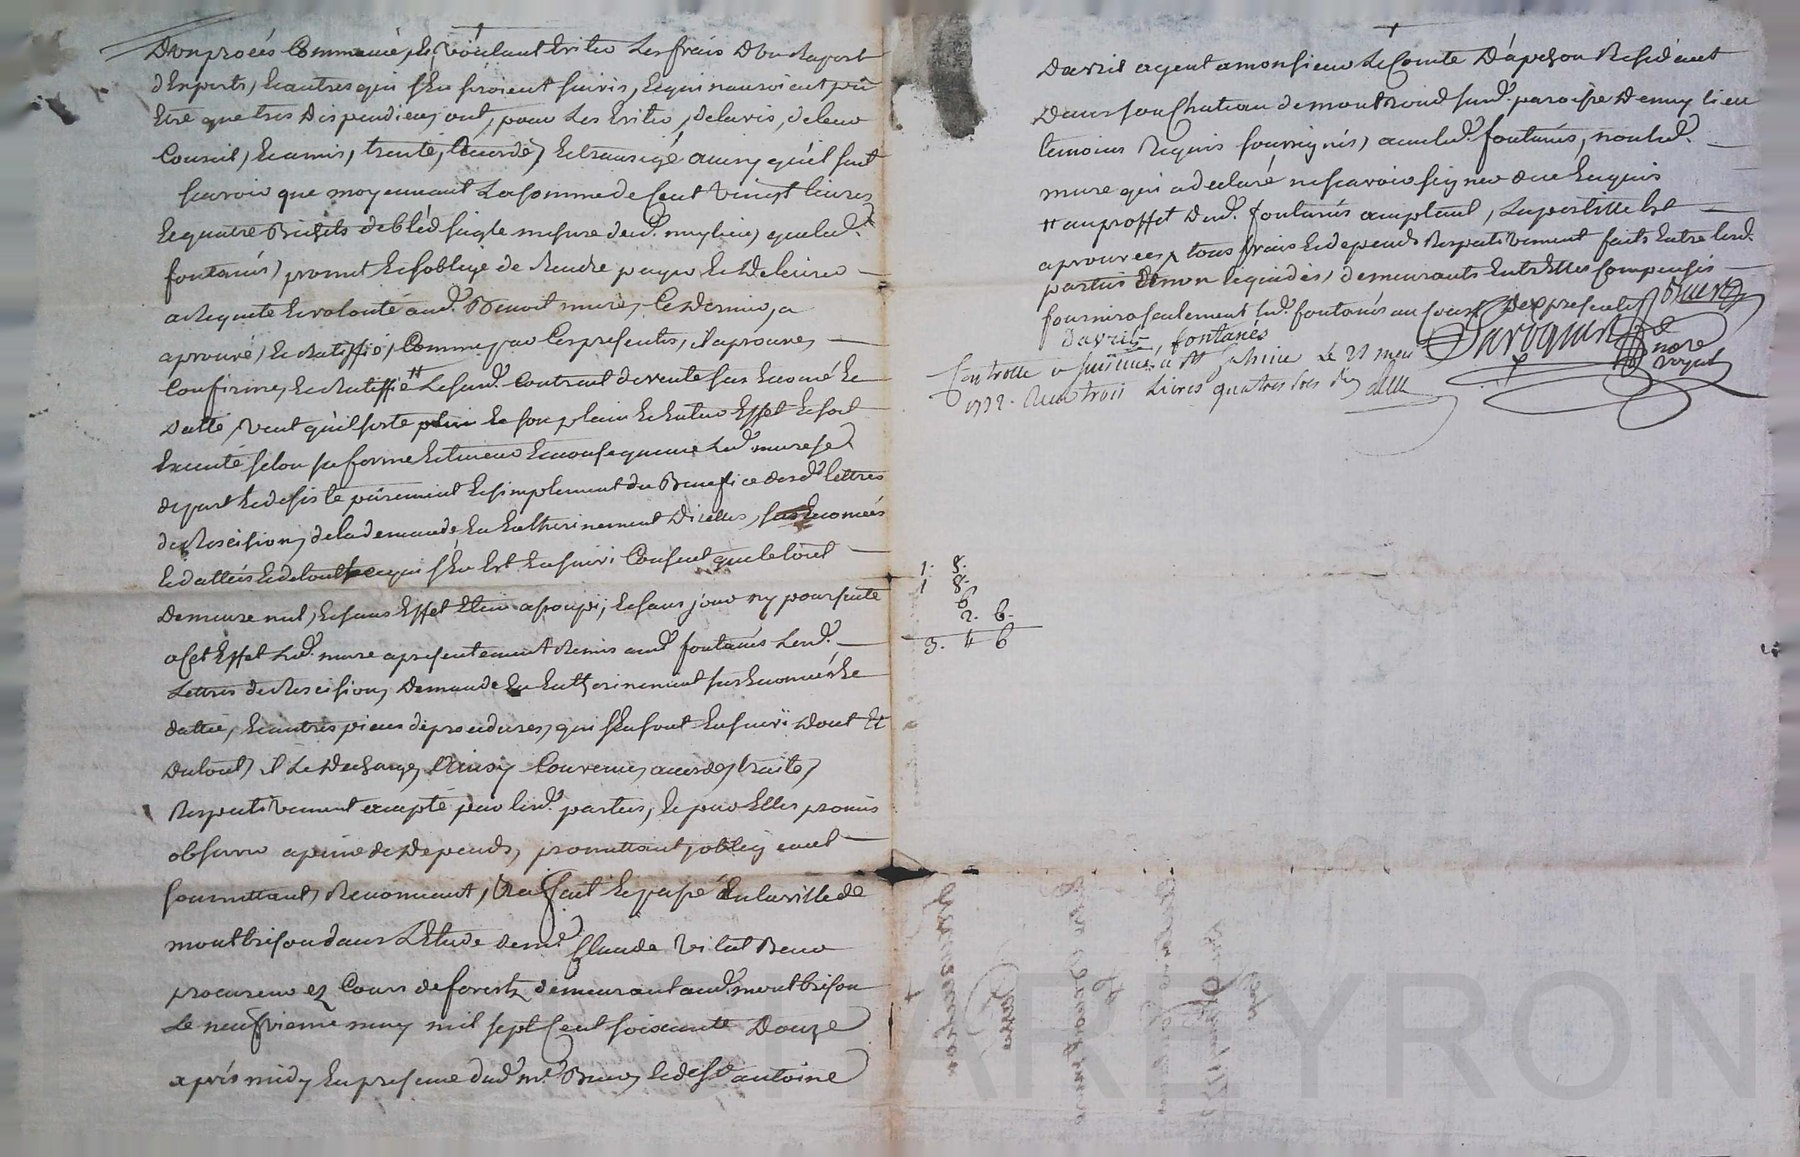 D'un procés Commancé, et voulant Eviter Les frais D'un Raport
d'Experts, et autres qui s'En seroient suivis, et qui nauroient pû
Etre que tres Dispendieux, ont, pour Les Eviter, de lavis, de leur
Conseil, et amis, traité, accordé, et transigé ainsy qu'il suit
scavoir que moyennant La somme de Cent vingt livres
et quatre Bichets de bled seigle mesure dud. , que led.
fontanés, promet et soblige de Rendre payer et delivrer
a Requete et volonté aud. Benoit mure, Ce Dernier, a
aprouvé, et Ratiffié, Comme par Ces presentes, il aprouve,
Confirme, et Ratiffie Le susd. Contract de vente sus Enoncé et
Datté, veut qu'il sorte son plain et Entier Effet et soit
Executé selon sa forme et teneur En consequence led. mure se
depart et desiste purement et simplement du Benefice desd. lettres
de Rescision, de la demande En Entherinement D'icelles, sus Enoncées
et dattées et de tout ce qui s'En Est Ensuivi Consent que le tout
Demeure nul, et sans Effet Eteint assoupi, et sans jour ny poursuite
a Cet Effet led. mure a presentement Remis aud. fontanés Lesd.
Lettres de Rescision, Demande En Entherinement sus Enoncée et
dattée, et autres pieces de procedures, qui s'En sont Ensuivi Dont Et
Du tout, il Le Decharge, Ainsy Convenu, accordé, traité,
Respectivement accepté par lesd. parties, et par Elles promis
observer a peine de Depends, promettant, obligeant
soumettant, Renonceant, Ce fait et passé En la ville de
montbrison dans L'Etude de me. Claude vital Buer
procureur ez Cours de forest demeurant aud. montbrison
Le neufvieme may mil sept Cent soixante Douze
aprés midy En presence dud. me. Buer, et de sr. antoine
Davril agent a monsieur Le Comte D'apchon Residant
Dans son Chateau de montRond susd. paroisse Demeylieu
temoins Requis soussignés, avec led. fontanés, non led.
mure qui a declaré ne scavoir signer de ce Enquis
# au proffet Dud. fontanés acceptant, La postille Est
aprouvée, tous frais et depends Respectivement faits Entre lesd.
parties non liquidés, demeurants Entr'Elles Compensés
fournira seulement led. fontanés au Cout Des presentes Buer
Davril, fontanés
Controllé a St Galmier Le 21 may
1772. Recu trois Livres quatres sols six
notre
royal
1. 8.
1 8.
6
2. 6.
3. 4 6
CHAREYRON